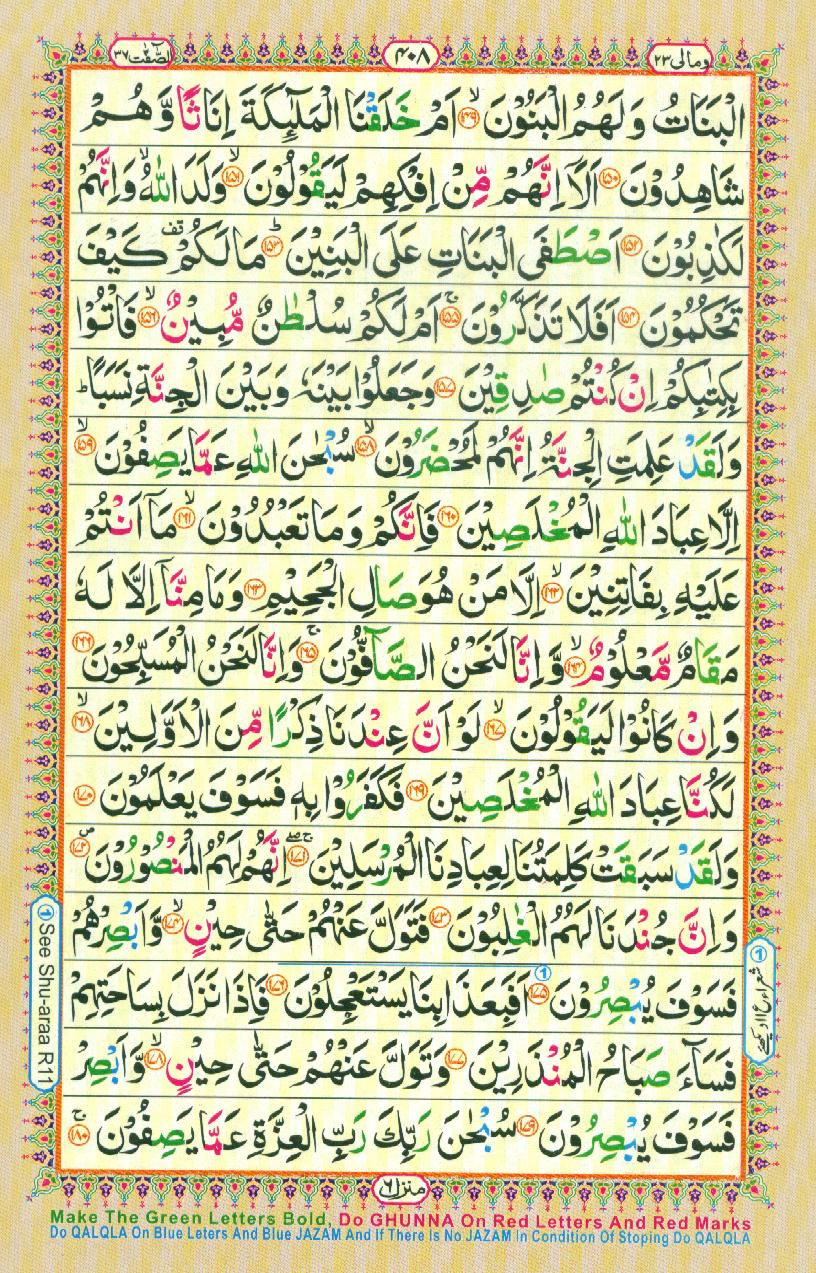 الصّٰٓفّٰت ٣٧
٤٠٨
ومالی ٢٣
الْبَنَاتُ وَلَهُمُ الْبَنُوْنَ ۙ﴿۱۴۹﴾ اَمْ خَلَقْنَا الْمَلٰٓئِكَةَ اِنَاثًا وَّهُمْ
شَاهِدُوْنَ ﴿۱۵۰﴾ اَلَاۤ اِنَّهُمْ مِّنْ اِفْكِهِمْ لَيَقُوْلُوْنَ ۙ﴿۱۵۱﴾ وَلَدَ اللّٰهُ ۙ وَاِنَّهُمْ
لَكٰذِبُوْنَ ﴿۱۵۲﴾ اَصْطَفَى الْبَنَاتِ عَلَى الْبَنِيْنَ ؕ﴿۱۵۳﴾ مَا لَكُمْ ۫ كَيْفَ
تَحْكُمُوْنَ ﴿۱۵۴﴾ اَفَلَا تَذَكَّرُوْنَ ۚ﴿۱۵۵﴾ اَمْ لَكُمْ سُلْطٰنٌ مُّبِيْنٌ ۙ﴿۱۵۶﴾ فَاْتُوْا
بِكِتٰبِكُمْ اِنْ كُنْتُمْ صٰدِقِيْنَ ﴿۱۵۷﴾ وَجَعَلُوْا بَيْنَهٗ وَبَيْنَ الْجِنَّةِ نَسَبًا ؕ
وَلَقَدْ عَلِمَتِ الْجِنَّةُ اِنَّهُمْ لَمُحْضَرُوْنَ ۙ﴿۱۵۸﴾ سُبْحٰنَ اللّٰهِ عَمَّا يَصِفُوْنَ ۙ﴿۱۵۹﴾
اِلَّا عِبَادَ اللّٰهِ الْمُخْلَصِيْنَ ﴿۱۶۰﴾ فَاِنَّكُمْ وَمَا تَعْبُدُوْنَ ۙ﴿۱۶۱﴾ مَاۤ اَنْتُمْ
عَلَيْهِ بِفَاتِنِيْنَ ۙ﴿۱۶۲﴾ اِلَّا مَنْ هُوَ صَالِ الْجَحِيْمِ ﴿۱۶۳﴾ وَمَا مِنَّاۤ اِلَّا لَهٗ
مَقَامٌ مَّعْلُوْمٌ ۙ﴿۱۶۴﴾ وَّاِنَّا لَنَحْنُ الصَّآفُّوْنَ ۚ﴿۱۶۵﴾ وَاِنَّا لَنَحْنُ الْمُسَبِّحُوْنَ ﴿۱۶۶﴾
وَاِنْ كَانُوْا لَيَقُوْلُوْنَ ۙ﴿۱۶۷﴾ لَوْ اَنَّ عِنْدَنَا ذِكْرًا مِّنَ الْاَوَّلِيْنَ ۙ﴿۱۶۸﴾
لَكُنَّا عِبَادَ اللّٰهِ الْمُخْلَصِيْنَ ﴿۱۶۹﴾ فَكَفَرُوْا بِهٖ فَسَوْفَ يَعْلَمُوْنَ ﴿۱۷۰﴾
وَلَقَدْ سَبَقَتْ كَلِمَتُنَا لِعِبَادِنَا الْمُرْسَلِيْنَ ۚۖ﴿۱۷۱﴾ اِنَّهُمْ لَهُمُ الْمَنْصُوْرُوْنَ ۪﴿۱۷۲﴾
وَاِنَّ جُنْدَنَا لَهُمُ الْغٰلِبُوْنَ ﴿۱۷۳﴾ فَتَوَلَّ عَنْهُمْ حَتّٰى حِيْنٍ ۙ﴿۱۷۴﴾ وَّاَبْصِرْهُمْ
فَسَوْفَ يُبْصِرُوْنَ ﴿۱۷۵﴾ ① اَفَبِعَذَابِنَا يَسْتَعْجِلُوْنَ ﴿۱۷۶﴾ فَاِذَا نَزَلَ بِسَاحَتِهِمْ
فَسَآءَ صَبَاحُ الْمُنْذَرِيْنَ ﴿۱۷۷﴾ وَتَوَلَّ عَنْهُمْ حَتّٰى حِيْنٍ ۙ﴿۱۷۸﴾ وَّاَبْصِرْ
فَسَوْفَ يُبْصِرُوْنَ ﴿۱۷۹﴾ سُبْحٰنَ رَبِّكَ رَبِّ الْعِزَّةِ عَمَّا يَصِفُوْنَ ۚ﴿۱۸۰﴾
① See Shu-araa R11
منزل ٦
Make The Green Letters Bold, Do GHUNNA On Red Letters And Red Marks
Do QALQLA On Blue Leters And Blue JAZAM And If There Is No JAZAM In Condition Of Stoping Do QALQLA